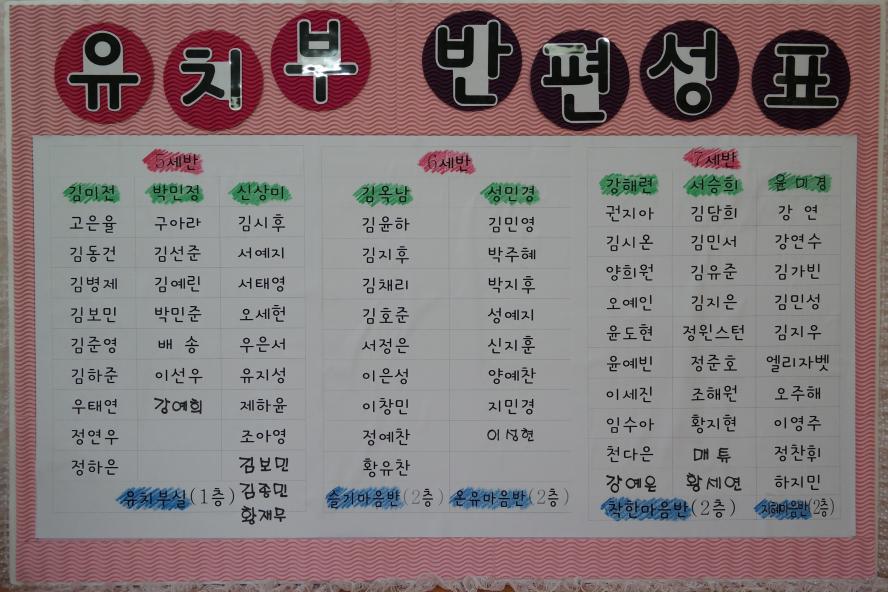 유치부 반편성표
5세반 6세반 7세반
김미전 박민정 신상미 김옥남 성민경 강해련 서승희 윤미경
고은율 구아라 김시후 김윤하 김민영 권지아 김담희 강 연
김동건 김선준 서예지 김지후 박주혜 김시온 김민서 강연수
김병제 김예린 서태영 김채리 박지후 양희원 김유준 김가빈
김보민 박민준 오세헌 김호준 성예지 오예인 김지은 김민성
김준영 배 송 우은서 서정은 신지훈 윤도현 정윈스턴 김지우
김하준 이선우 유지성 이은성 양예찬 윤예빈 정준호 엘리자벳
우태연 강예희 제하윤 이창민 지민경 이세진 조해원 오주해
정연우 조아영 정예찬 이성현 임수아 황지현 이영주
정하은 김보민 황유찬 천다은 매튜 정찬휘
김종민 강예은 황세연 하지민
유치부실(1층) 슬기마음반(2층) 온유마음반(2층) 착한마음반(2층) 지혜마음반(2층)
황재무